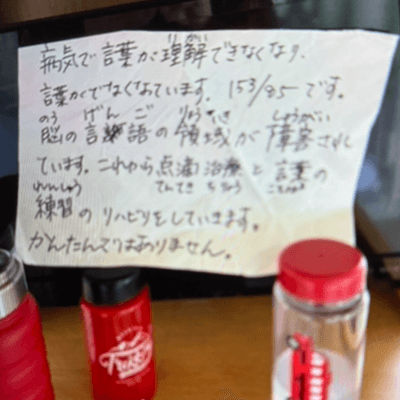 病気で言葉が理解できなくなり、
りかい
言葉がでなくなっています。153/85です。
のう げんご りょういき しょうがい
脳の言語の領域が障害され
ています。これから点滴治療と言葉の
れんしゅう てんてき ちりょう ことば
練習のリハビリをしていきます。
かんたんではありません。